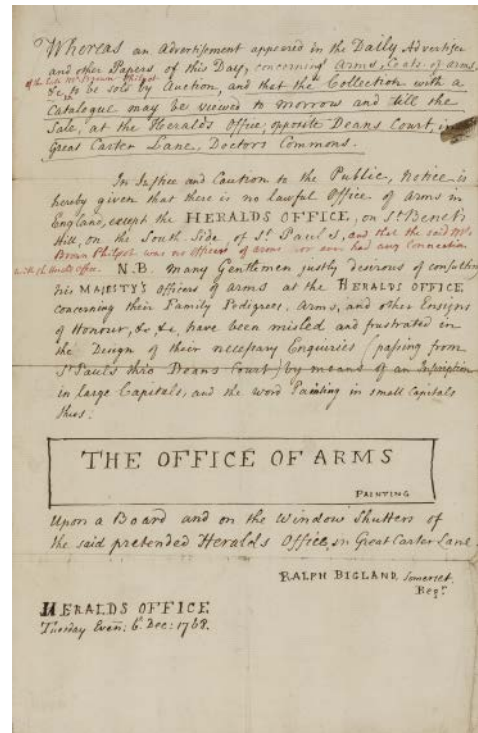 Whereas an Advertisement appeared in the Daily Advertiser
and other Papers of this Day, concerning Arms, Coats of Arms,
of the late Mr Brown Philpot
&c, to be sold by Auction, and that the Collection with a
Catalogue may be veiwed to morrow and till the
Sale, at the Heralds Office, opposite Deans Court, in
Great Carter Lane, Doctors Commons.
In Justice and Caution to the Public, Notice is
hereby given that there is no lawful Office of Arms in
England, except the HERALDS OFFICE, on St Benet's
Hill, on the South Side of St Paul's, and that the said Mr
Brown Philpot was no Officer of Arms nor ever had any Connection
with the Heralds Office. N.B. Many Gentlemen justly desirous of consulting
his MAJESTY'S Officers of Arms at the HERALDS OFFICE
concerning their Family Pedigrees, Arms, and other Ensigns
of Honour, &c &c, have been misled and frustrated in
the Design of their necessary Enquiries (passing from
St Pauls thro Deans Court) by means of an Inscription
in large Capitals, and the word Painting in small Capitals
thus:
THE OFFICE OF ARMS
PAINTING
Upon a Board and on the Window Shutters of
the said pretended Heralds Office, in Great Carter Lane
RALPH BIGLAND Somerset.
Regr.
HERALDS OFFICE
Tuesday Even: 6 Dec: 1768.